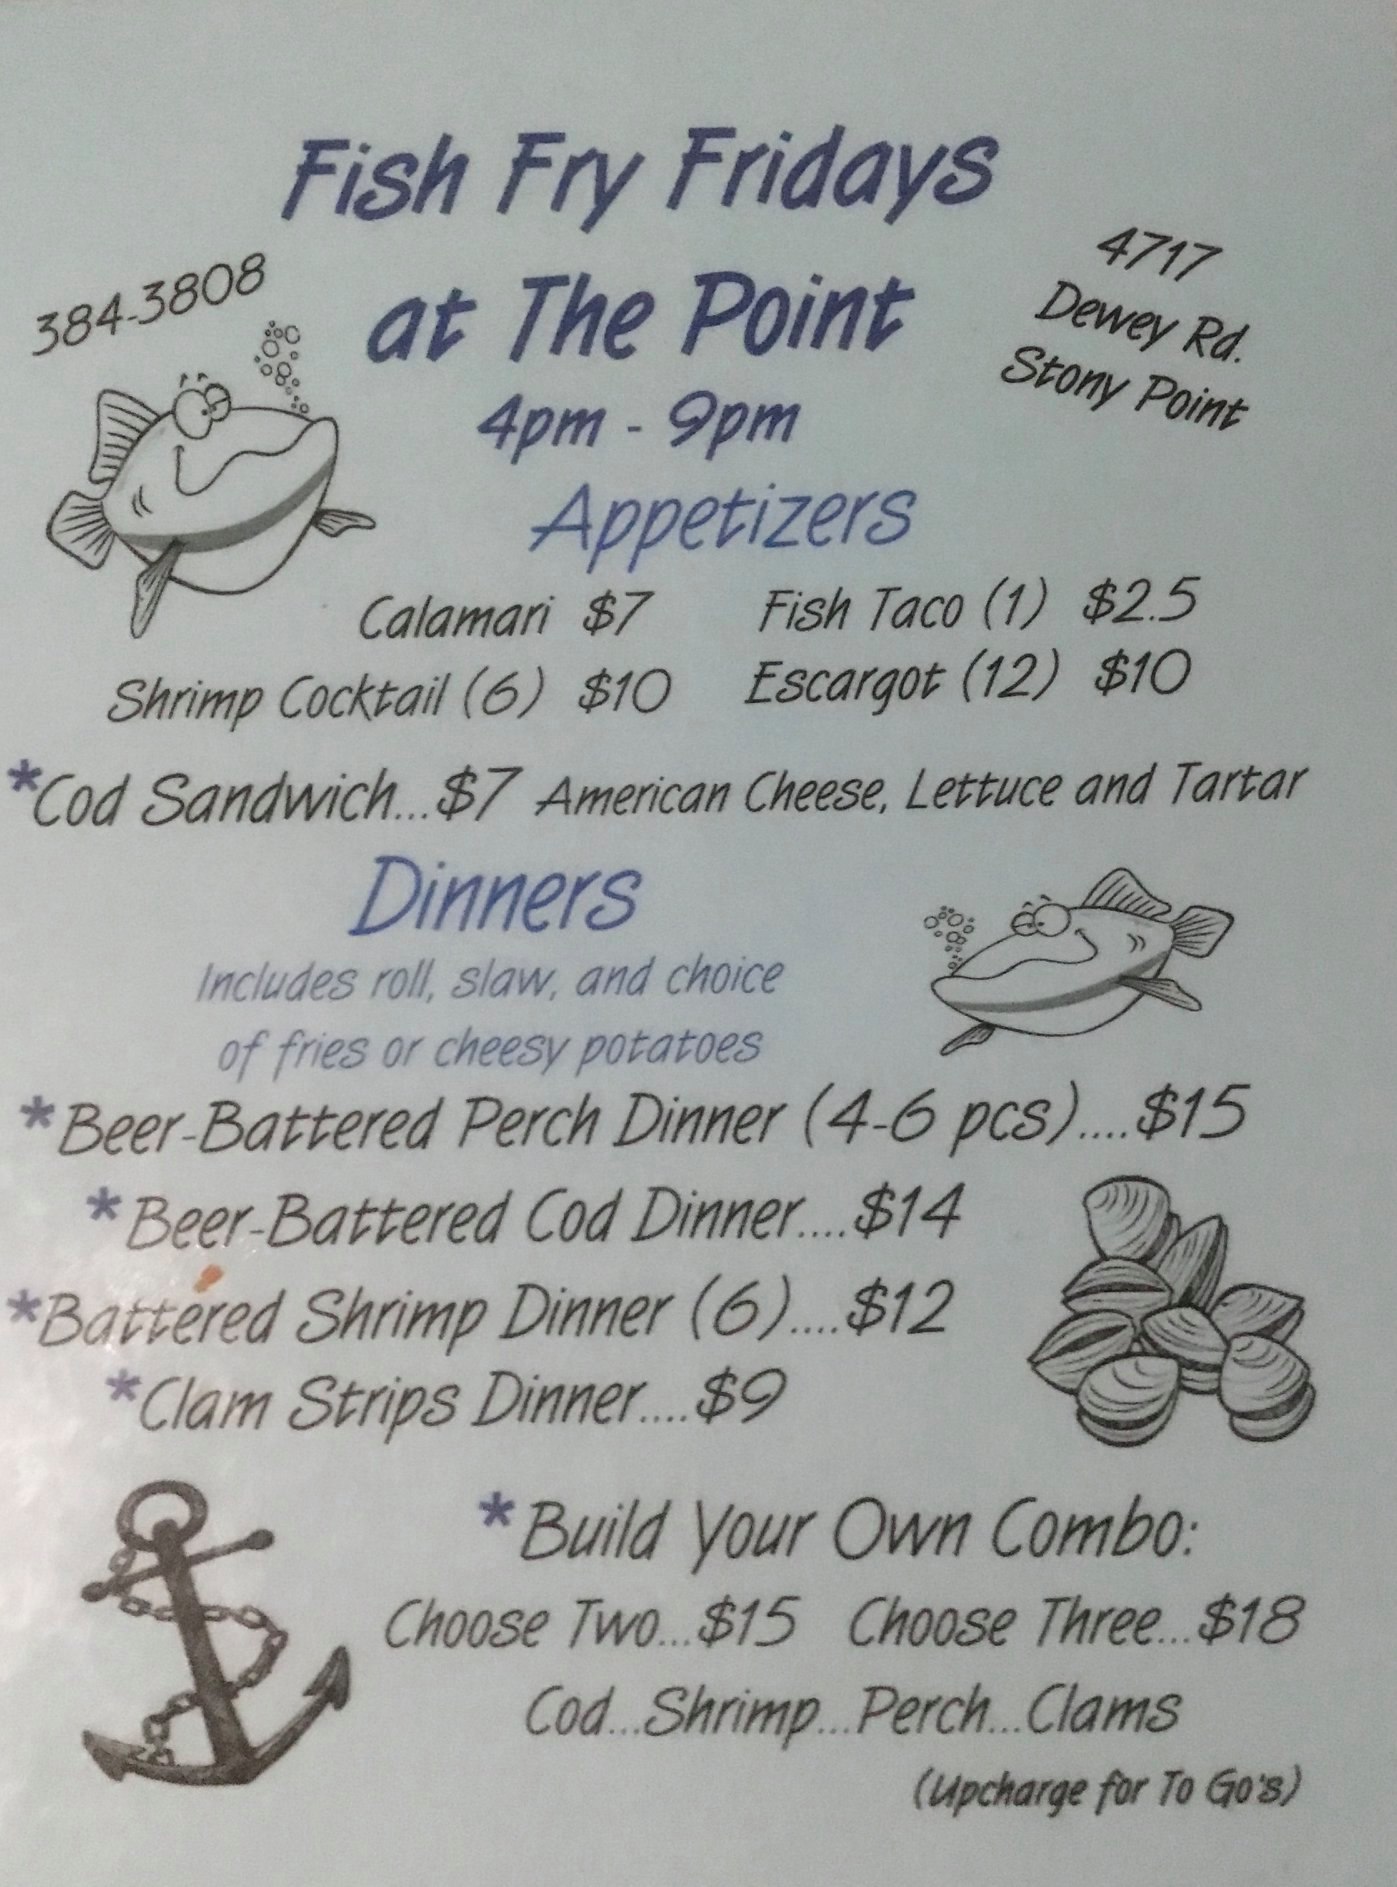 Fish Fry Fridays
at The Point
384-3808
4717
Dewey Rd.
Stony Point
4pm - 9pm
Appetizers
Calamari $7 Fish Taco (1) $2.5
Shrimp Cocktail (6) $10 Escargot (12) $10
*Cod Sandwich...$7 American Cheese, Lettuce and Tartar
Dinners
Includes roll, slaw, and choice
of fries or cheesy potatoes
*Beer-Battered Perch Dinner (4-6 pcs)....$15
*Beer-Battered Cod Dinner....$14
*Battered Shrimp Dinner (6)....$12
*Clam Strips Dinner....$9
*Build Your Own Combo:
Choose Two...$15 Choose Three...$18
Cod...Shrimp...Perch...Clams
(Upcharge for To Go's)